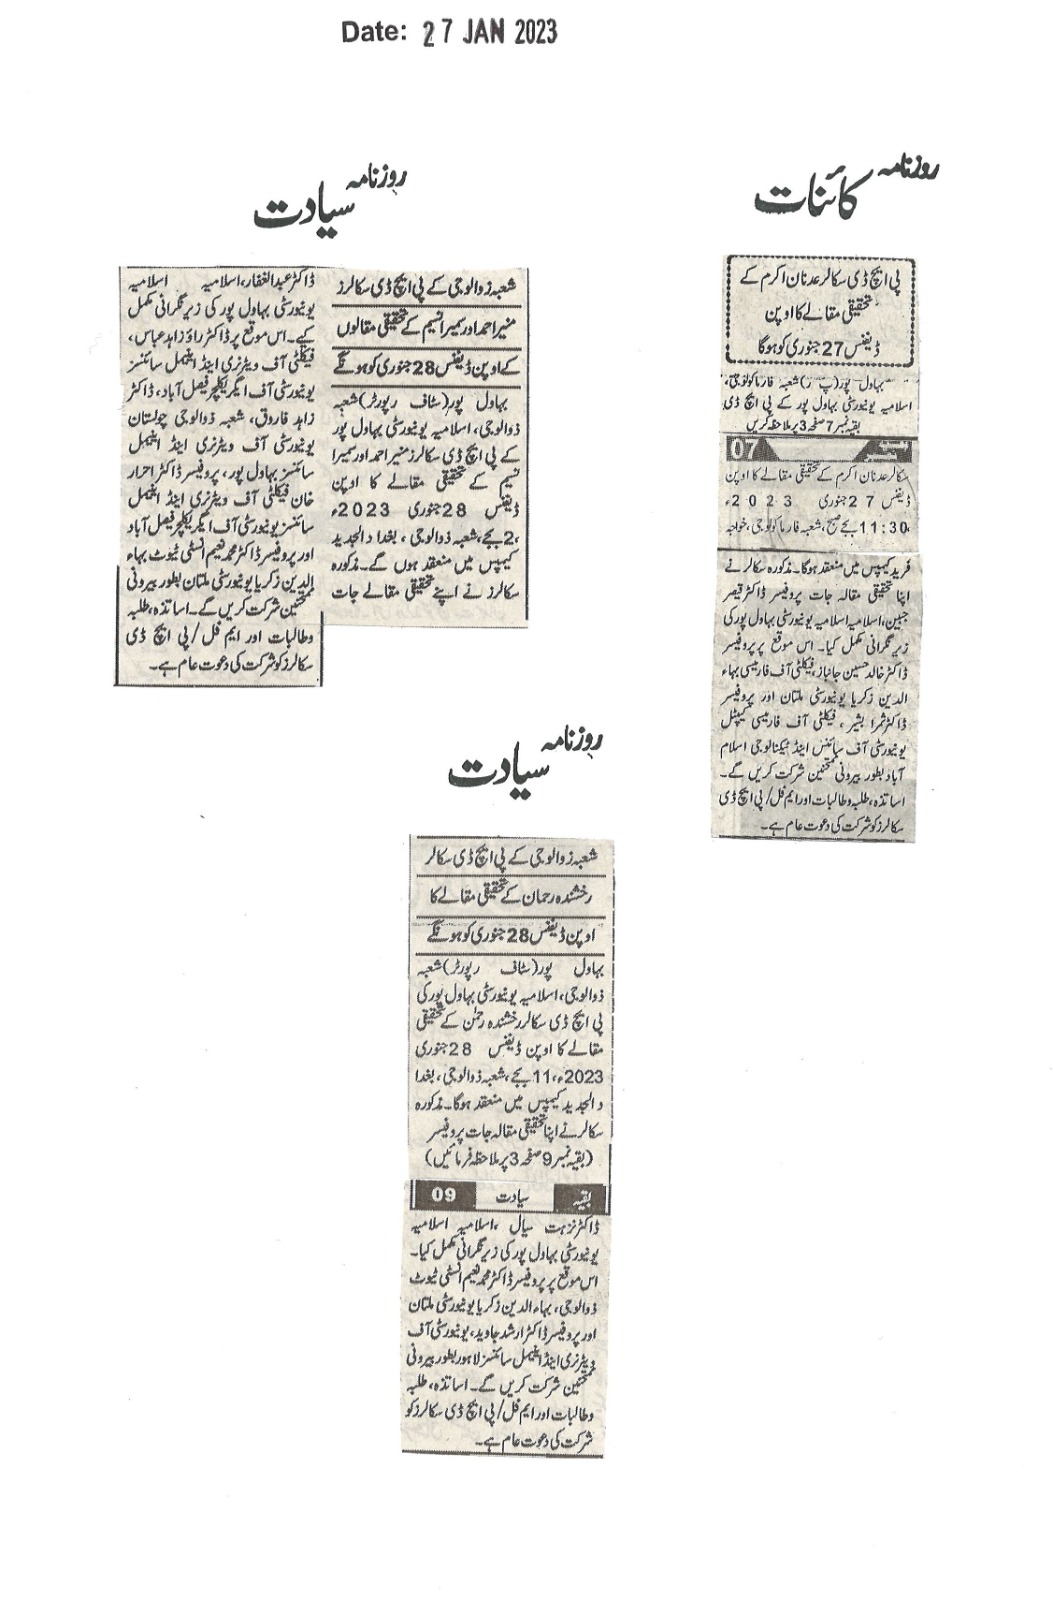 Date: 27 JAN 2023
روزنامہ کائنات
پی ایچ ڈی سکالر عدنان اکرم کے
تحقیقی مقالے کا اوپن
ڈیفنس 27 جنوری کو ہوگا
بہاول پور(پ ر)شعبہ فارماکولوجی،
اسلامیہ یونیورسٹی بہاول پور کے پی ایچ ڈی
بقیہ نمبر 7 صفحہ 3 پر ملاحظہ کریں
07
سکالر عدنان اکرم کے تحقیقی مقالے کا اوپن
ڈیفنس 27 جنوری 2023ء
،11:30 بجے صبح، شعبہ فارماکولوجی، خواجہ
فرید کیمپس میں منعقد ہوگا۔ مذکورہ سکالر نے
اپنا تحقیقی مقالہ جات پروفیسر ڈاکٹر قیصر
جبین، اسلامیہ اسلامیہ یونیورسٹی بہاول پور کی
زیر نگرانی مکمل کیا۔ اس موقع پر پروفیسر
ڈاکٹر خالد حسین جانباز، فیکلٹی آف فارمیسی بہاء
الدین زکریا یونیورسٹی ملتان اور پروفیسر
ڈاکٹر ثمرا بشیر، فیکلٹی آف فارمیسی کیپٹل
یونیورسٹی آف سائنس اینڈ ٹیکنالوجی اسلام
آباد بطور بیرونی ممتحنین شرکت کریں گے۔
اساتذہ، طلبہ و طالبات اور ایم فل/پی ایچ ڈی
سکالرز کو شرکت کی دعوت عام ہے۔
روزنامہ سیادت
شعبہ زوالوجی کے پی ایچ ڈی سکالرز
منیر احمد اور سمیرا نسیم کے تحقیقی مقالوں
کے اوپن ڈیفنس 28 جنوری کو ہونگے
بہاول پور(سٹاف رپورٹر)شعبہ
ذوالوجی، اسلامیہ یونیورسٹی بہاول پور
کے پی ایچ ڈی سکالرز منیر احمد اور سمیرا
نسیم کے تحقیقی مقالے کا اوپن
ڈیفنس 28 جنوری 2023ء
،2 بجے، شعبہ ذوالوجی، بغداد الجدید
کیمپس میں منعقد ہوں گے۔ مذکورہ
سکالرز نے اپنے تحقیقی مقالے جات
ڈاکٹر عبدالغفار، اسلامیہ اسلامیہ
یونیورسٹی بہاول پور کی زیر نگرانی مکمل
کیے۔ اس موقع پر ڈاکٹر راؤ زاہد عباس،
فیکلٹی آف ویٹرنری اینڈ اینیمل سائنسز
یونیورسٹی آف ایگریکلچر فیصل آباد، ڈاکٹر
زاہد فاروق، شعبہ ذوالوجی چولستان
یونیورسٹی آف ویٹرنری اینڈ اینیمل
سائنسز بہاول پور، پروفیسر ڈاکٹر احرار
خان فیکلٹی آف ویٹرنری اینڈ اینیمل
سائنسز یونیورسٹی آف ایگریکلچر فیصل آباد
اور پروفیسر ڈاکٹر محمد نعیم انسٹی ٹیوٹ بہاء
الدین زکریا یونیورسٹی ملتان بطور بیرونی
ممتحنین شرکت کریں گے۔ اساتذہ، طلبہ
و طالبات اور ایم فل/پی ایچ ڈی
سکالرز کو شرکت کی دعوت عام ہے۔
روزنامہ سیادت
شعبہ زوالوجی کے پی ایچ ڈی سکالر
رخشندہ رحمان کے تحقیقی مقالے کا
اوپن ڈیفنس 28 جنوری کو ہونگے
بہاول پور(سٹاف رپورٹر)شعبہ
ذوالوجی، اسلامیہ یونیورسٹی بہاول پور کی
پی ایچ ڈی سکالر رخشندہ رحمٰن کے تحقیقی
مقالے کا اوپن ڈیفنس 28 جنوری
2023ء، 11 بجے، شعبہ ذوالوجی، بغدا
د الجدید کیمپس میں منعقد ہوگا۔ مذکورہ
سکالر نے اپنا تحقیقی مقالہ جات پروفیسر
(بقیہ نمبر 9 صفحہ 3 پر ملاحظہ فرمائیں)
بقیہ سیادت 09
ڈاکٹر نزہت سیال، اسلامیہ اسلامیہ
یونیورسٹی بہاول پور کی زیر نگرانی مکمل کیا۔
اس موقع پر پروفیسر ڈاکٹر محمد نعیم انسٹی ٹیوٹ
ذوالوجی، بہاء الدین زکریا یونیورسٹی ملتان
اور پروفیسر ڈاکٹر ارشد جاوید، یونیورسٹی آف
ویٹرنری اینڈ اینیمل سائنسز لاہور بطور بیرونی
ممتحنین شرکت کریں گے۔ اساتذہ، طلبہ
و طالبات اور ایم فل/پی ایچ ڈی سکالرز کو
شرکت کی دعوت عام ہے۔